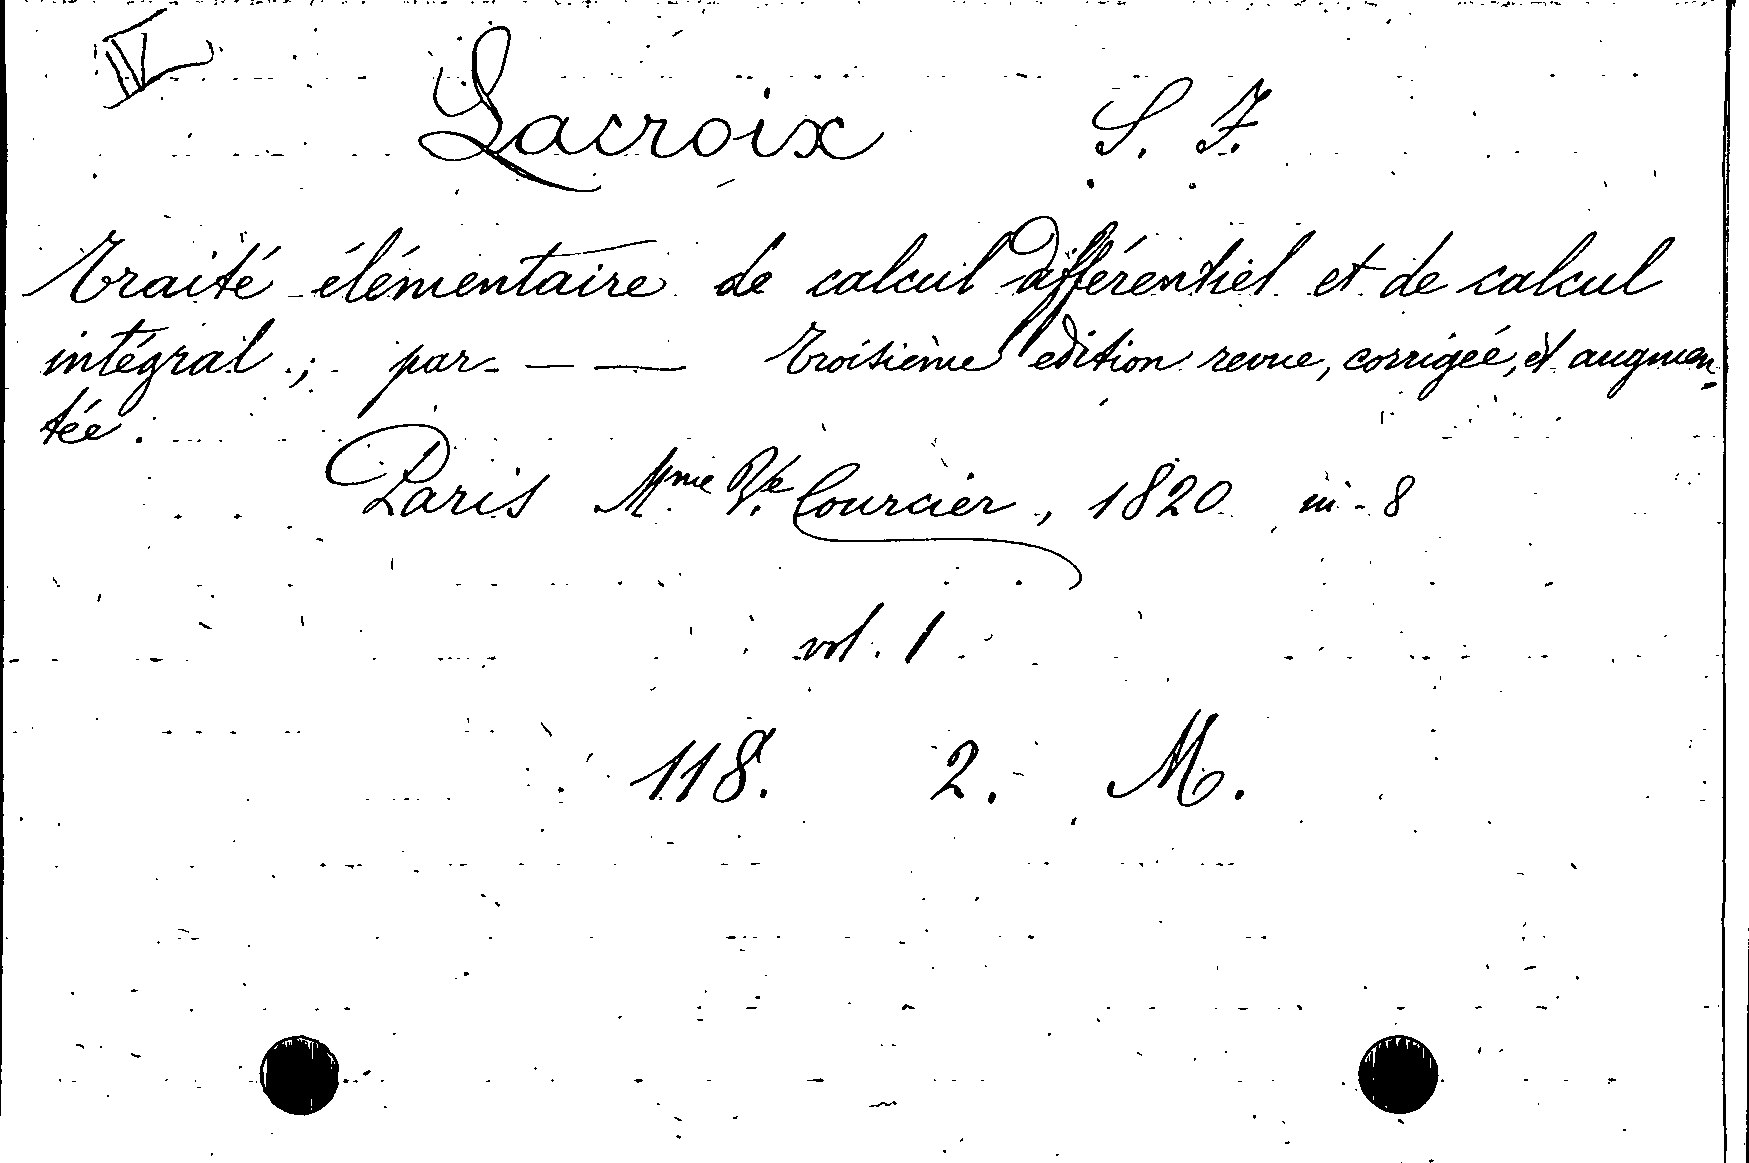 IV
Lacroix S. F.
Traité élémentaire de calcul différentiel et de calcul
intégral ; par - — — troisième edition revue, corrigée, et augmen-
tée.
Paris Mme Vve Courcier, 1820 in-8
vol. 1
118. 2. M.